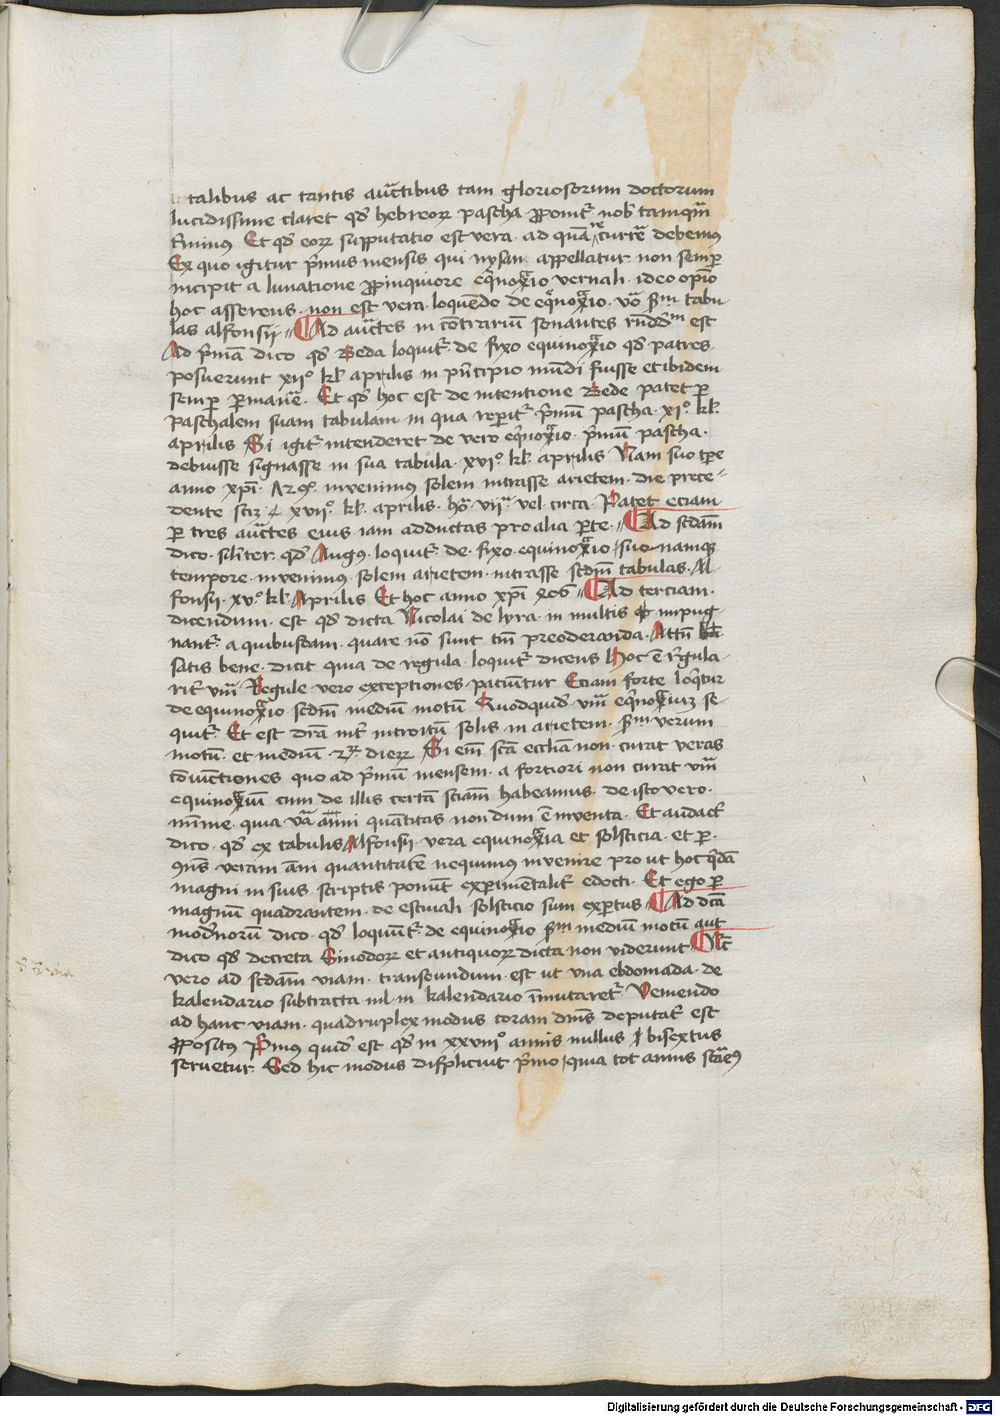 talibus ac tantis auctibus tam gloriosorum doctorum
lucidissime claret qd hebreorꝝ pascha ꝓponitˀ nob tamqm̄
Et qd eorꝝ supputatio est vera ad quā debemus
Ex quo igitur pˀmus mensis qui nysan appellatur non semꝑ
incipit a lunatione ꝓpinquiore eqˀnoxio vernali ideo opīo
hoc asserens non est vera loquendo de eqˀnoxio vō sm̄ tabu
las alfonsij Ad auctes in cōtrariū sonantes rn̄dd̄m est
Ad pˀmā dico qd Beda loquitˀ de fixo equinoxio qd patres
posuerunt xijº kl aprilis in pˀncipio mūdi fuisse et ibidem
semꝑ ꝑmanē Et qd hoc est de intentione Bede patet ꝑ
paschalem suam tabulam in qua reperitˀ pˀmū pascha xjº kl
aprilis Si igitˀ intenderet de vero eqˀnoxio pˀmū pascha
debuisse signasse in sua tabula xvjº kl aprilis Nam suo tꝑe
anno xpī invenimus solem intrasse arietem die prece
dente xvijº kl aprilis hª vijª vel circa Patet eciam
ꝑ tres auctes eius iam adductas pro alia ꝑte Ad scd̄am
dico silˀiter qd Augꝰ loquitˀ de fixo equinoxio suo namqꝫ
tempore invenimus solem arietem intrasse scdm̄ tabulas Al
fonsij xvº kl Aprilis Et hoc anno xpī 406 Ad terciam
dicendum est qd dicta Nicolai de lyra in multis impug
nantˀ a quibusdam quare nō sunt tm̄ preoderanda Attn̄
satis bene dicit quia de regula loquitˀ dicens Hoc ē rˀgula
ritˀ Regule vero exceptiones paciūtur Eciam forte loqˀtur
de equinoxio scdm̄ medium motū Quodquidˀ eqˀnoxiuꝫ se
quitˀ Et est drā intˀ introitū solis in arietem sm̄ verum
motū et mediū dierꝝ Si em̄ scā ecclīa non curat veras
cōiūctiones quo ad pˀmū mensem a fortiori non curat
equinoxiū cum de illis certā sciam habeamus de isto vero
mīme quia vā anni quātitas nondum ē inventa Et audacˀ
dico qd ex tabulis Alfonsij vera equinoxia et solsticia et ꝑ
ꝯn̄s veram āni quantitatē nequimus invenire pro ut hoc qˀdā
magni in suis scriptis ponūt exꝑimētalitˀ edocti Et ego ꝑ
magnū quadrantem de estivali solsticio sum exꝑtus Ad dcā
modˀnorum dico qd loquūtˀ de equinoxio sm̄ medium motū aut
dico qd decreta Sinodorꝝ et antiquorꝝ dicta non viderunt
vero ad scdām viam transeundum est ut una ebdomada de
kalendario subtracta nil in kalendario īmutaretˀ Veniendo
ad hanc viam quadruplex modus coram dn̄is deputatˀ est
ꝓpositus Pˀmus quidˀ est qd in xxviijº annis nullus bisextus
servetur Sed hic modus displicuit pˀmo quia tot annis